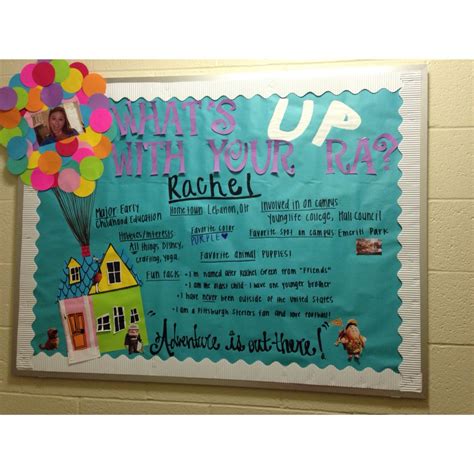 WHAT'S UP
WITH YOUR RA?
Rachel
Major: Early
Childhood Education
Hometown: Lebanon, OH
Involved in on campus
Younglife College, Hall Council
Hobbies/Interests
All things Disney,
crafting, Yoga
Favorite color
PURPLE
Favorite spot on campus
Favorite animal PUPPIES!
Fun Facts
• I am named after Rachel Green from "Friends"
• I am the oldest child. I have one younger brother
• I have never been outside of the United States
• I am a Pittsburgh Steelers fan and love football!
"Adventure is out there!"